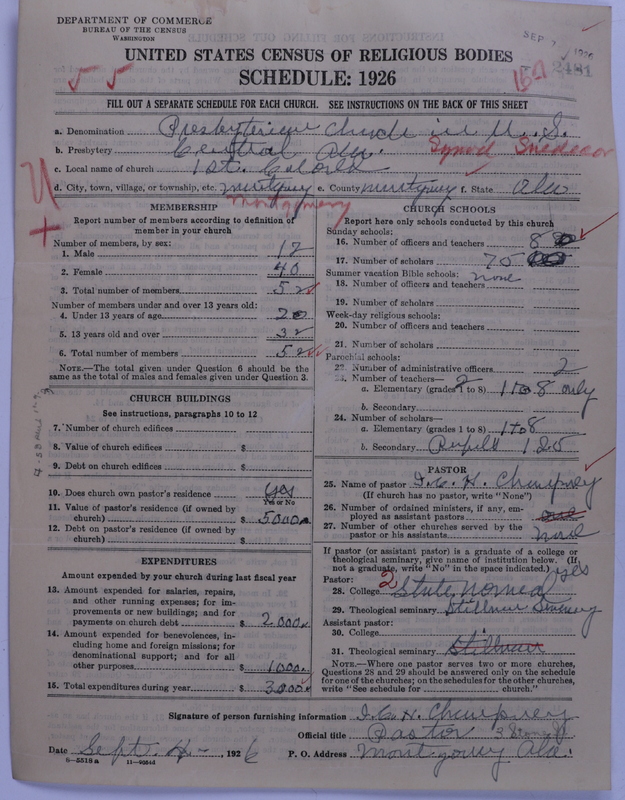 DEPARTMENT OF COMMERCE
BUREAU OF THE CENSUS
WASHINGTON
SEP 7 1926
2481
UNITED STATES CENSUS OF RELIGIOUS BODIES
SCHEDULE: 1926
FILL OUT A SEPARATE SCHEDULE FOR EACH CHURCH. SEE INSTRUCTIONS ON THE BACK OF THIS SHEET
a. Denomination Presbyterian Church in U. S.
b. Presbytery Central Ala. Synod Snedecor
c. Local name of church 1st. Colored
d. City, town, village, or township, etc. Montgomery e. County Montgomery f. State Ala
Montgomery
MEMBERSHIP
Report number of members according to definition of member in your church
Number of members, by sex:
1. Male 12
2. Female 40
3. Total number of members 52
Number of members under and over 13 years old:
4. Under 13 years of age 20
5. 13 years old and over 32
6. Total number of members 52
NOTE.—The total given under Question 6 should be same as the total of males and females given under Question 3.
CHURCH BUILDINGS
See instructions, paragraphs 10 to 12
7. Number of church edifices
8. Value of church edifices $
9. Debt on church edifices $
10. Does church own pastor's residence yes
Yes or No
11. Value of pastor's residence (if owned by church) $ 5000
12. Debt on pastor's residence (if owned by church) $
EXPENDITURES
Amount expended by your church during last fiscal year
13. Amount expended for salaries, repairs, and other running expenses; for improvements or new buildings; and for payments on church debt $ 2000
14. Amount expended for benevolences, including home and foreign missions; for denominational support; and for all other purposes $ 1000
15. Total expenditures during year $ 3000
CHURCH SCHOOLS
Report here only schools conducted by this church
Sunday schools:
16. Number of officers and teachers 8
17. Number of scholars 75
Summer vacation Bible schools: none
18. Number of officers and teachers
19. Number of scholars
Week-day religious schools:
20. Number of officers and teachers
21. Number of scholars
Parochial schools:
22. Number of administrative officers 2
23. Number of teachers— 2
a. Elementary (grades 1 to 8) 1 to 8 only
b. Secondary
24. Number of scholars—
a. Elementary (grades 1 to 8) 1 to 8
b. Secondary 125
PASTOR
25. Name of pastor I. C. H. Champney
(If church has no pastor, write "None")
26. Number of ordained ministers, if any, employed as assistant pastors
27. Number of other churches served by the pastor or his assistants none
If pastor (or assistant pastor) is a graduate of a college or theological seminary, give name of institution below. (If not a graduate, write "No" in the space indicated) yes
Pastor:
28. College 2 State Normal
29. Theological seminary Stillman Seminary
Assistant pastor:
30. College
31. Theological seminary Stillman
NOTE.—Where one pastor serves two or more churches, Questions 28 and 29 should be answered only on the schedule for one of the churches; on the schedules for the other churches, write "See schedule for church."
Signature of person furnishing information I. C. H. Champney
Official title Pastor
Date Sept. 4 - , 1926 P. O. Address Montgomery Ala.
8—5518 a 11—9054d